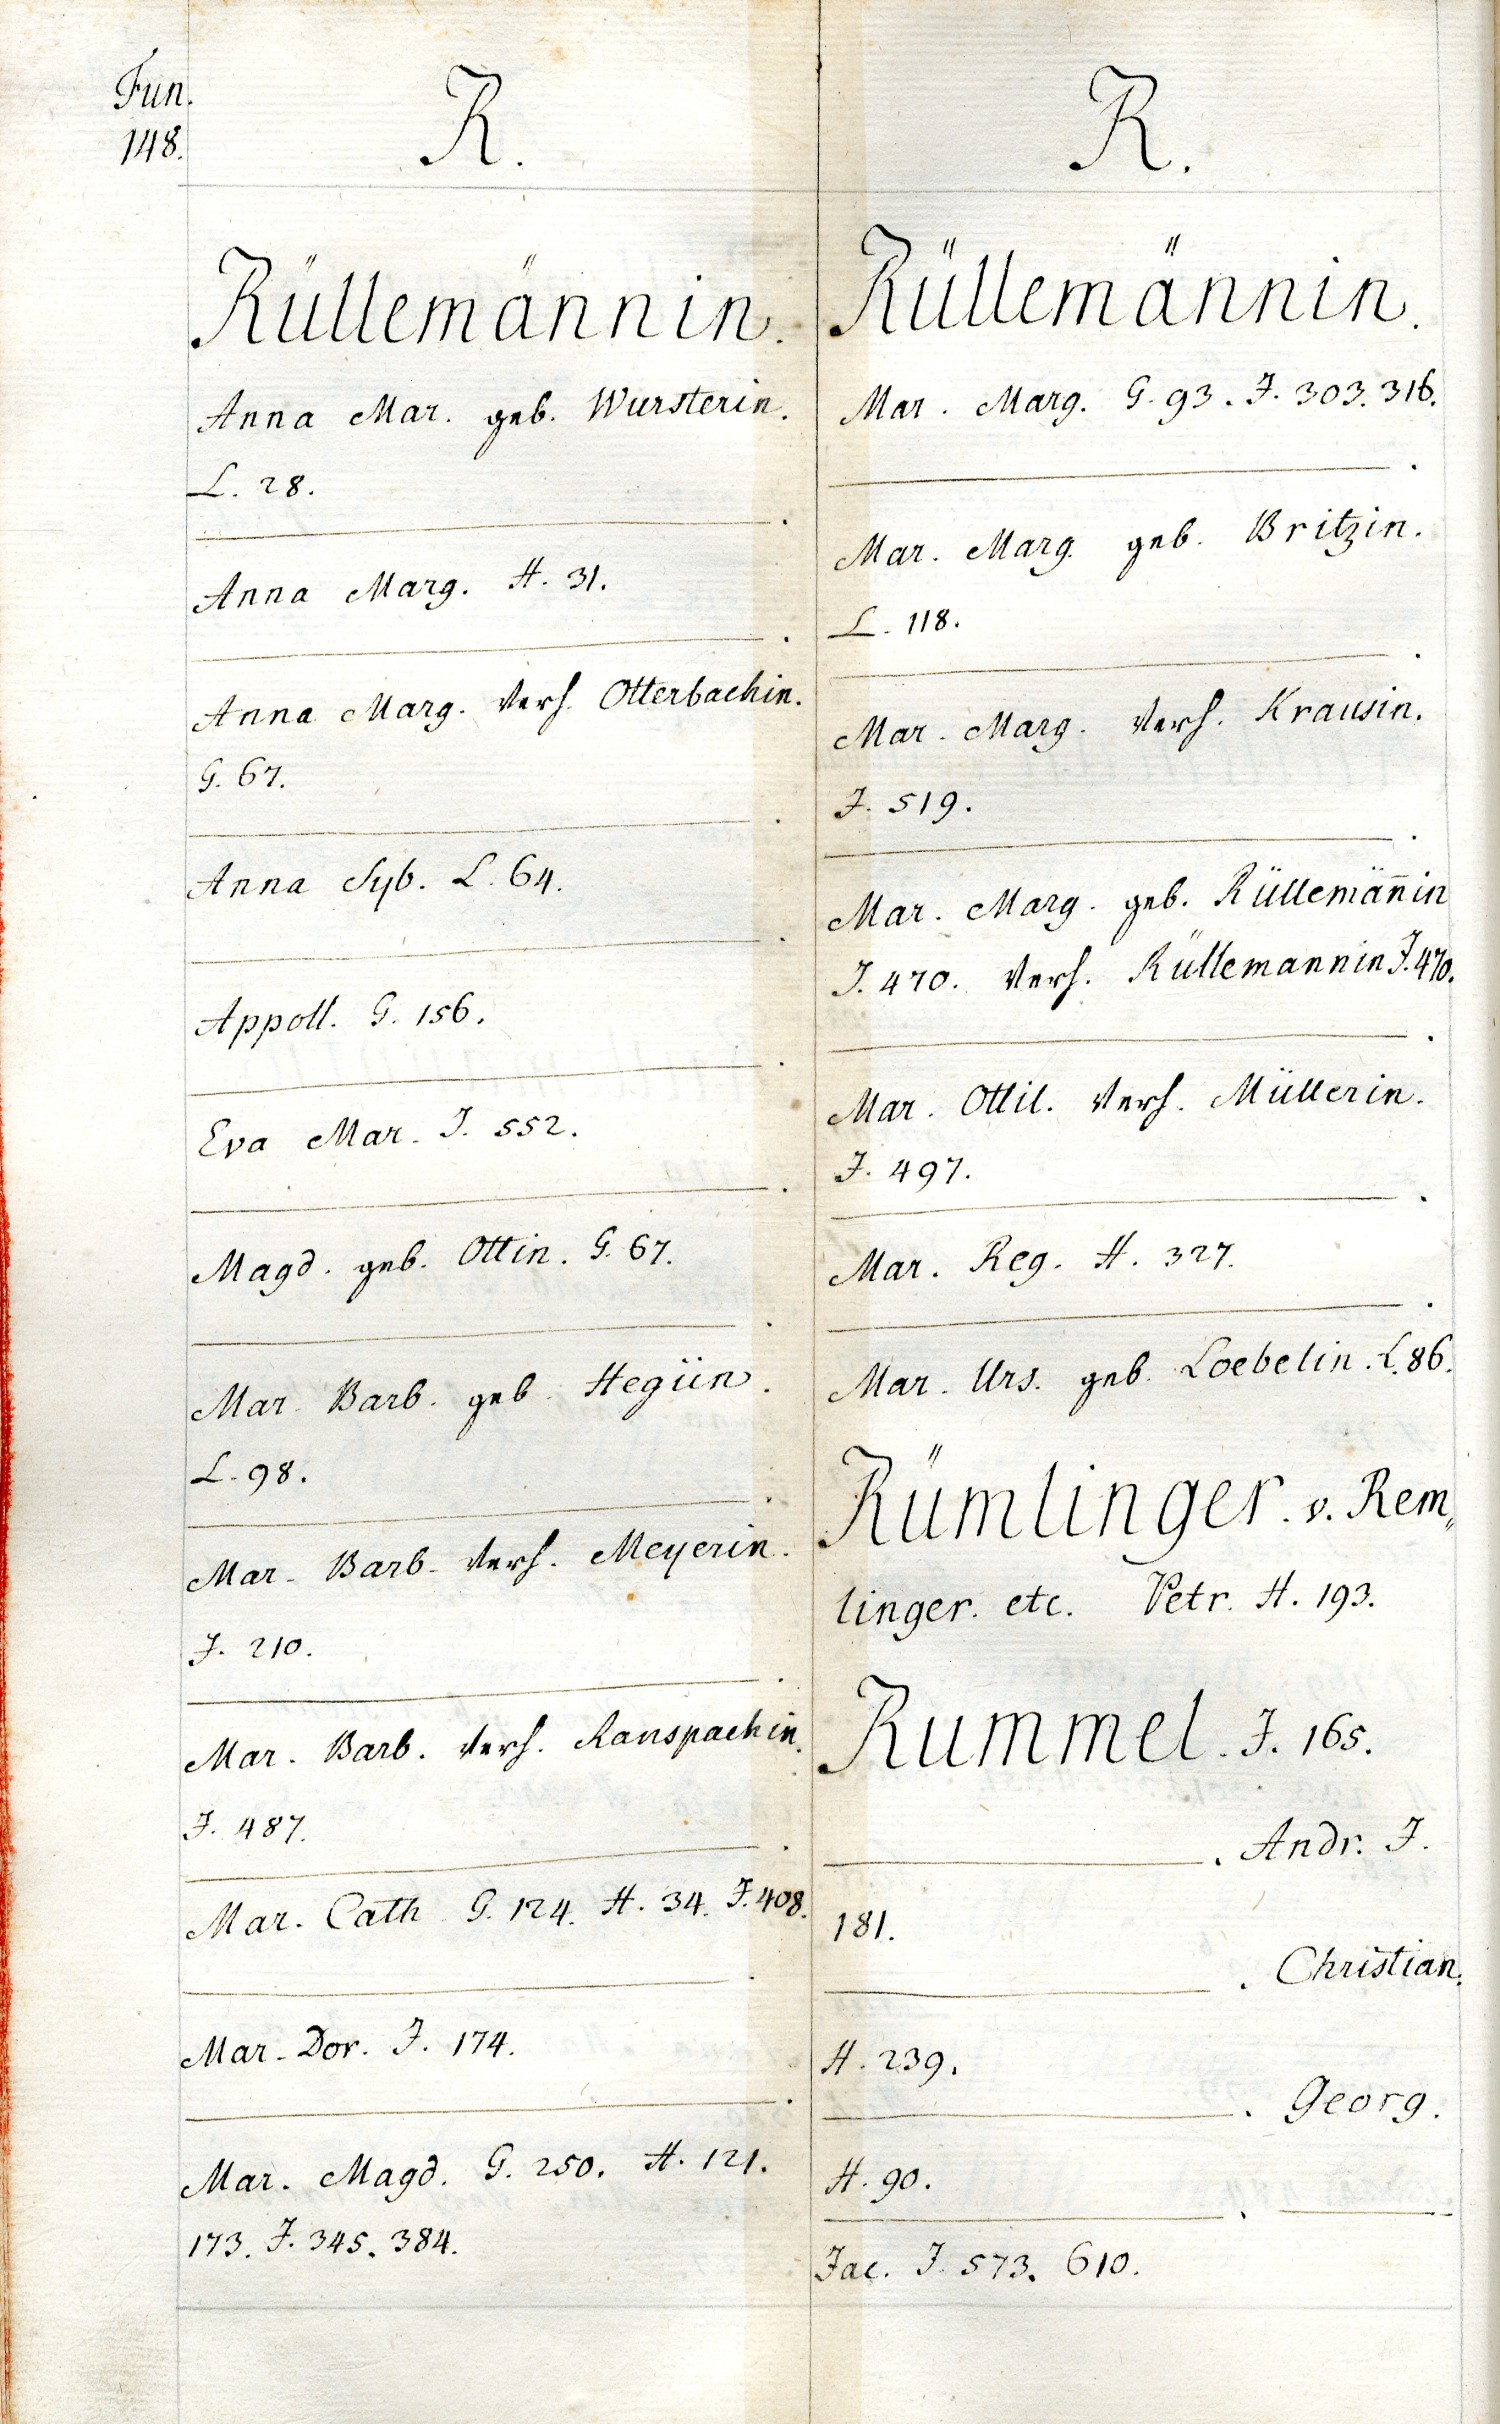 Fun.
148.
R.
Rüllemännin.
Anna Mar. geb. Wursterin.
L. 28.
Anna Marg. H. 31.
Anna Marg. Verh. Otterbachin.
G. 67.
Anna Syb. L. 64.
Appoll. G. 156.
Eva Mar. J. 552.
Magd. geb. Ottin. G. 67.
Mar. Barb. geb. Hegiin.
L. 98.
Mar. Barb. Verh. Meyerin.
J. 210.
Mar. Barb. Verh. Ranspachin.
J. 487.
Mar. Cath. G. 124. H. 34. J. 408.
Mar. Dor. J. 174.
Mar. Magd. G. 250. H. 121.
173. J. 345. 384.
R.
Rüllemännin.
Mar. Marg. G. 93. J. 303. 316.
Mar. Marg. geb. Britzin.
L. 118.
Mar. Marg. Verh. Krausin.
J. 519.
Mar. Marg. geb. Rüllemän̄in
J. 470. Verh. Rüllemannin J. 470.
Mar. Ottil. Verh. Müllerin.
J. 497.
Mar. Reg. H. 327.
Mar. Urs. geb. Loebelin. L. 86.
Rümlinger. v. Rem„
linger. etc. Petr. H. 193.
Rummel. J. 165.
. Andr. J.
181.
. Christian.
H. 239.
. Georg.
H. 90.
Jac. J. 573. 610.